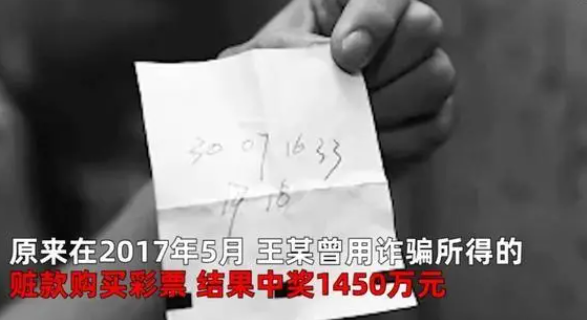 30 07 16 33
17 16
原来在2017年5月 王某曾用诈骗所得的
赃款购买彩票 结果中奖1450万元